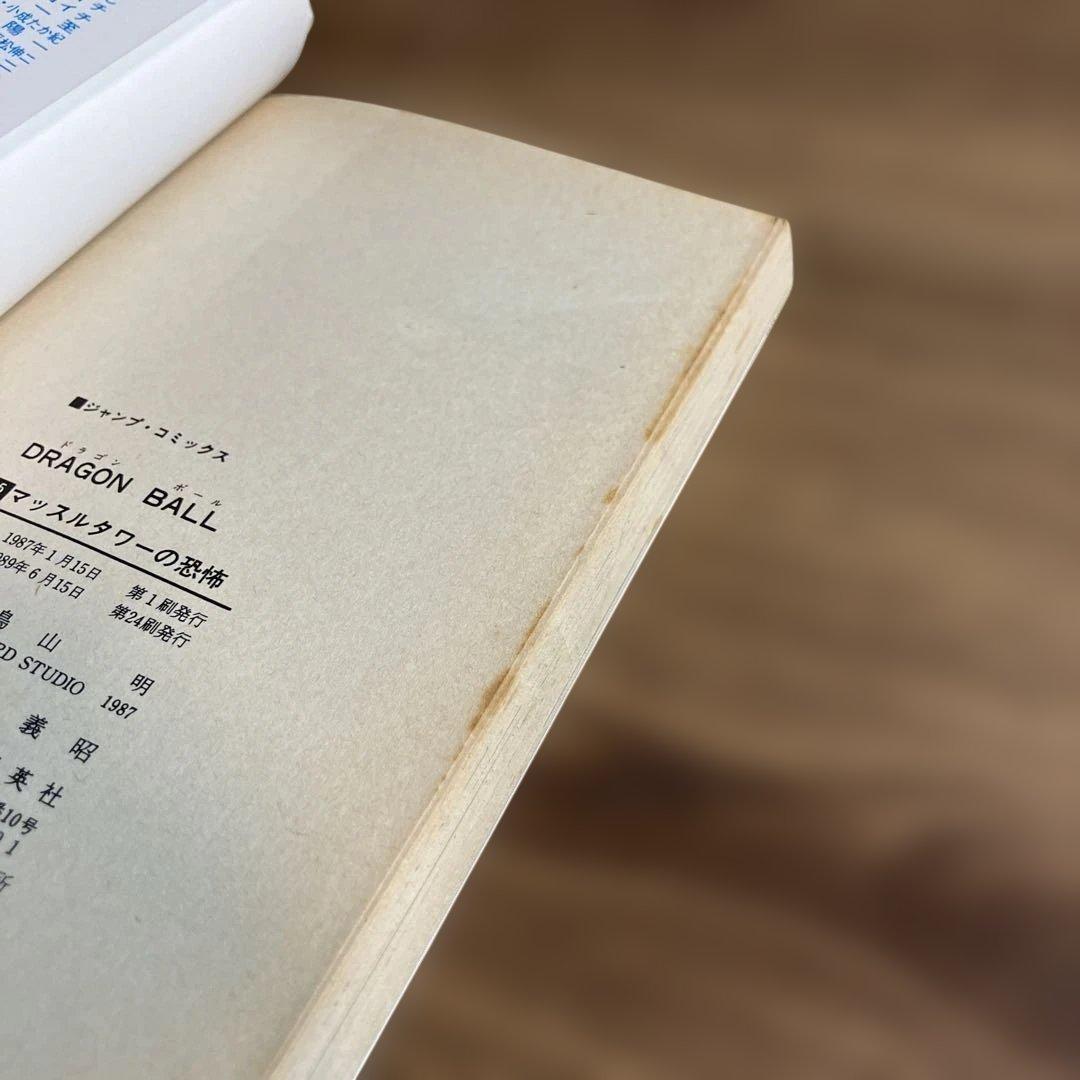 イチ 至
・小成たか紀
陽一
松伸二
■ジャンプ・コミックス
ドラゴン ボール
DRAGON BALL
5 マッスルタワーの恐怖
1987年1月15日 第1刷発行
89年6月15日 第24刷発行
鳥山 明
RD STUDIO 1987
義昭
英社
10号
01
所